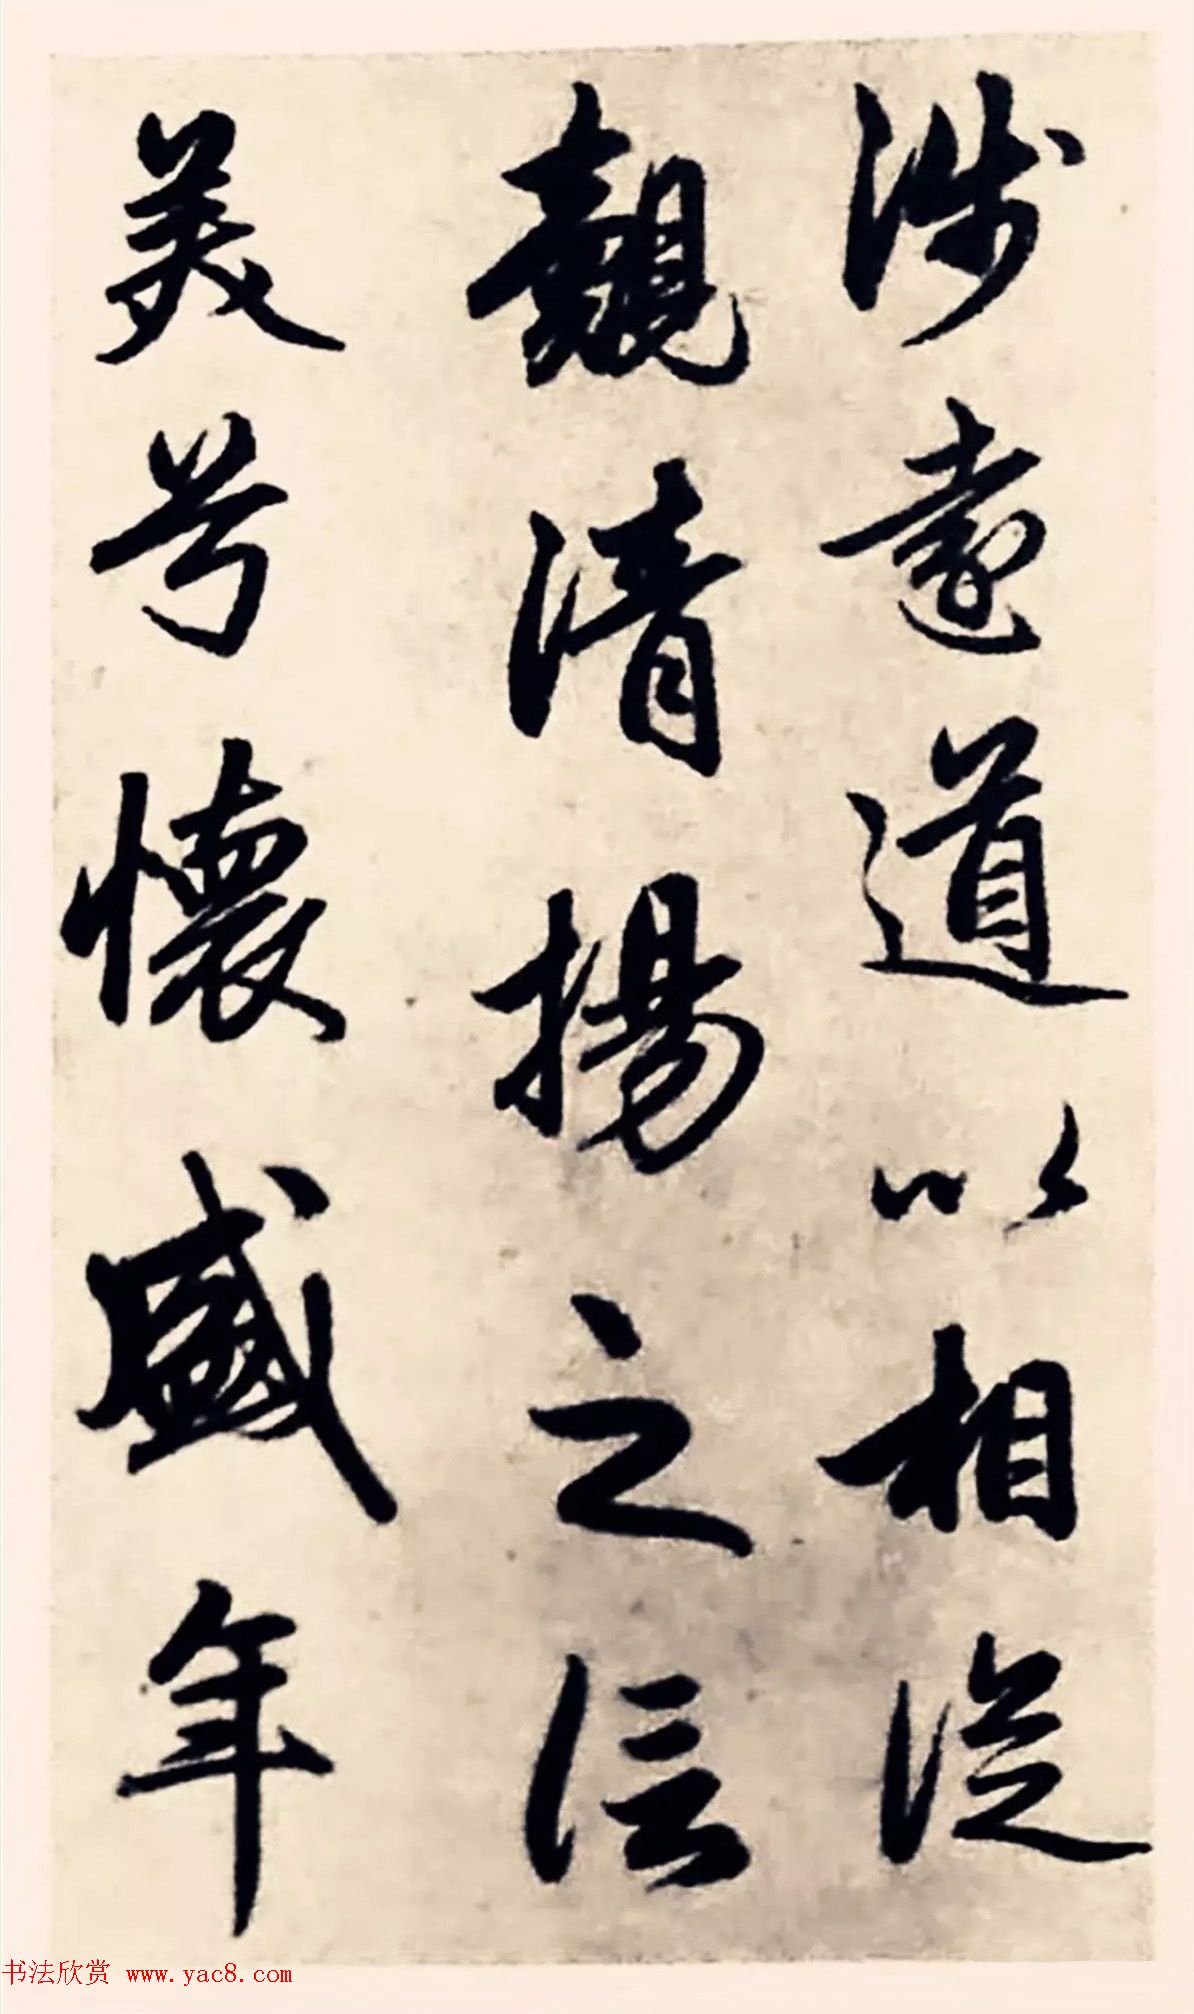 涉遠道以相從
覿清揚之信
美号懷盛年
书法欣赏 www.yac8.com